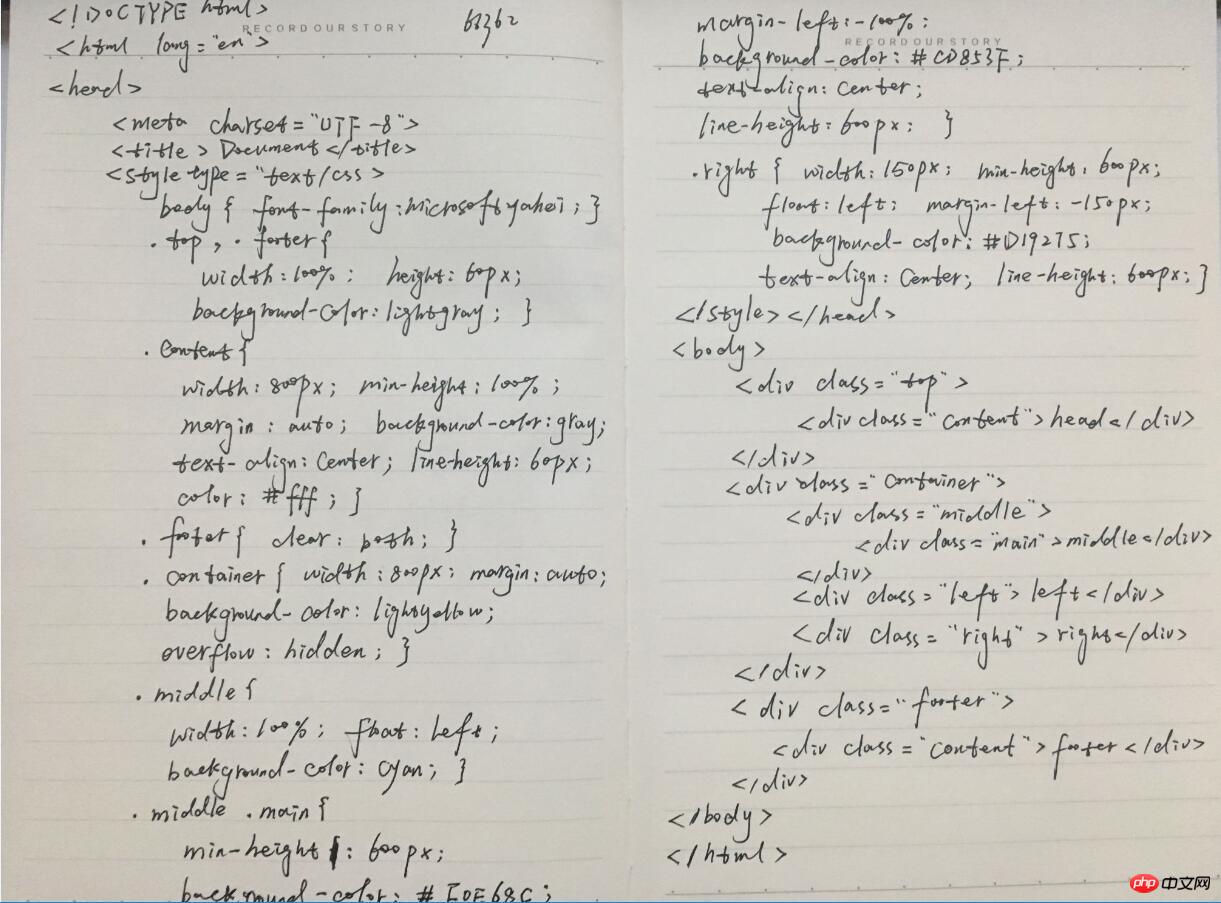 <!DOCTYPE html>
RECORD OUR STORY
<html lang="en">
<head>
<meta charset="UTF-8">
<title> Document</title>
<style type="text/css >
body { font-family:Microsoft yahei; }
.top, .footer{
width:100%; height:60px;
background-color:lightgray; }
.content{
width:800px; min-height:100%;
margin: auto; background-color:gray;
text-align:center; line-height:60px;
color: #fff; }
.footer{ clear: both; }
.container{ width:800px; margin:auto;
background-color:lightyellow;
overflow:hidden; }
.middle{
width:100%; float:left;
background-color:cyan; }
.middle .main{
min-height: 600px;
background-color:
margin-left:-100%;
RECORD OUR STORY
background-color: #CD853F;
text-align: center;
line-height: 600px; }
.right { width:150px; min-height: 600px;
float:left; margin-left: -150px;
background-color: #D19275;
text-align: center; line-height: 600px; }
</style></head>
<body>
<div class="top">
<div class="content">head</div>
</div>
<div class="container">
<div class="middle">
<div class="main">middle</div>
</div>
<div class="left">left</div>
<div class="right">right</div>
</div>
<div class="footer">
<div class="content">footer</div>
</div>
</body>
</html>
php 中文网